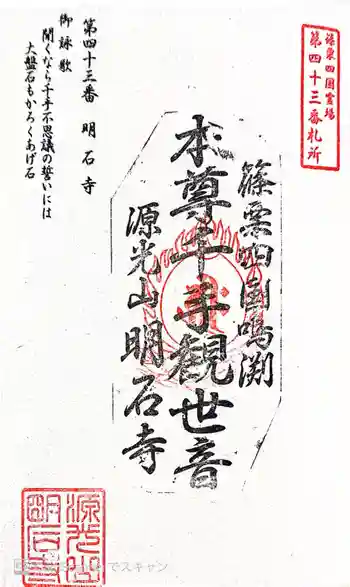 篠栗四国霊場
第四十三番札所
篠栗四国鳴渕
本尊千手観世音
源光山明石寺
第四十三番 明石寺
御詠歌
聞くなら千手不思議の誓いには
大盤石もかろくあげ石
源光山
明石寺
でスキャン